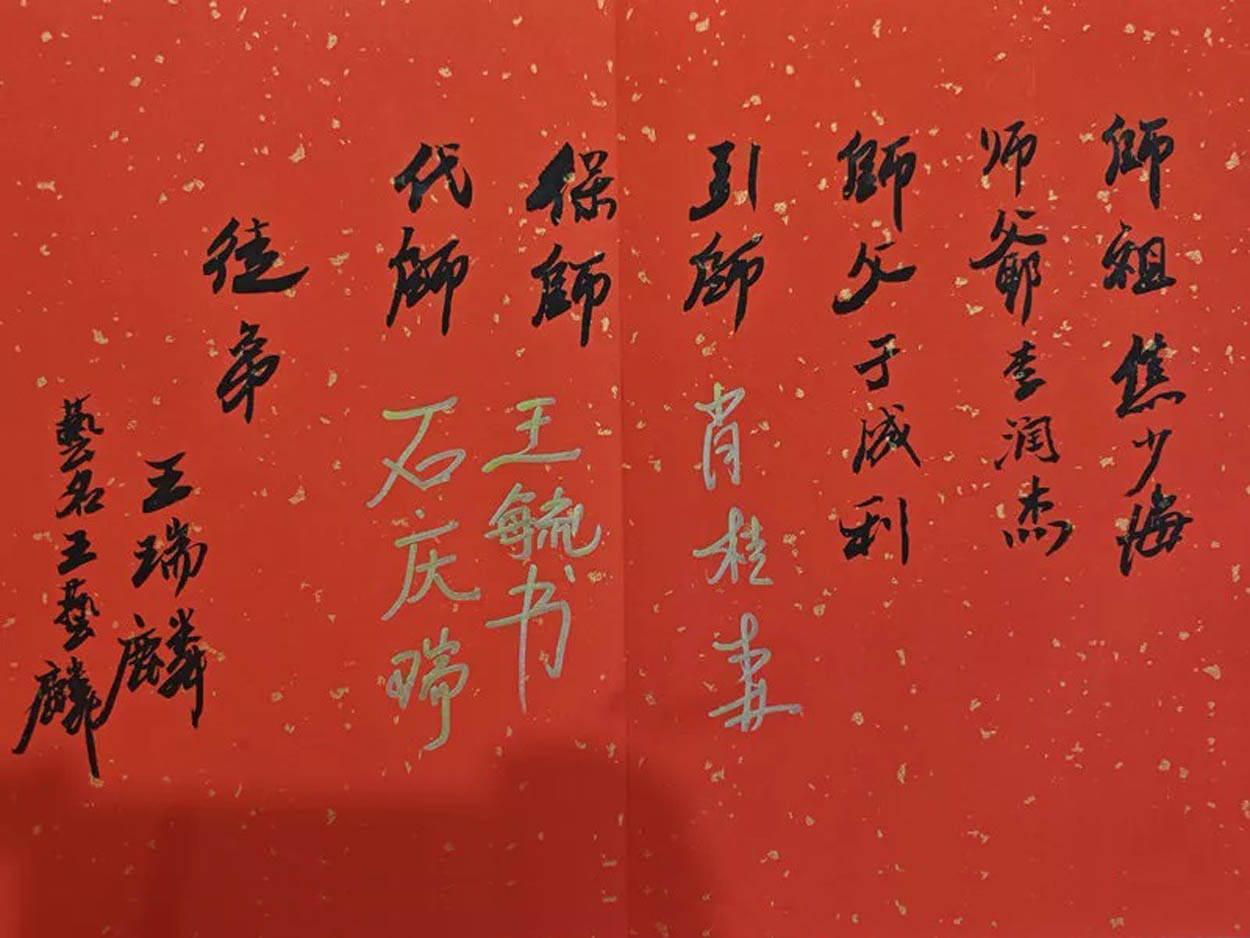 師祖 焦少海
师爷 李润杰
師父 于成利
引師 肖桂森
保師 王毓书
代師 石庆瑞
徒弟
王瑞麟
藝名王藝麟